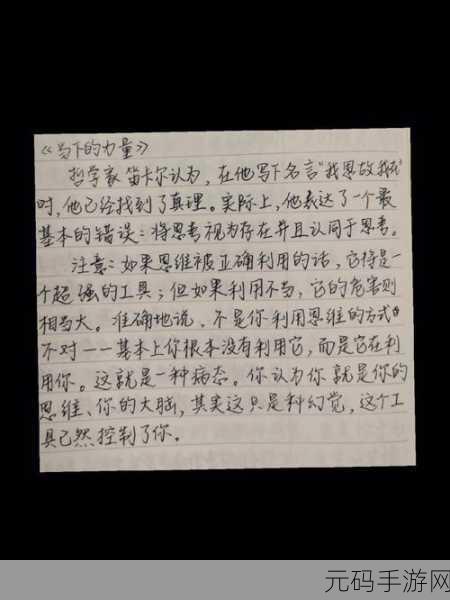 《当下的力量》
哲学家笛卡尔认为，在他写下名言“我思故我在”
时，他已经找到了真理。实际上，他表达了一个最
基本的错误：将思考视为存在并且认同于思考。
注意：如果思维被正确利用的话，它将是一
个超强的工具；但如果利用不当，它的危害则
相当大。准确地说，不是你利用思维的方式
不对——基本上你根本没有利用它，而是它在利
用你。这就是一种病态。你认为你就是你的
思维、你的大脑，其实这只是种幻觉，这个工
具已然控制了你。
元码手游网